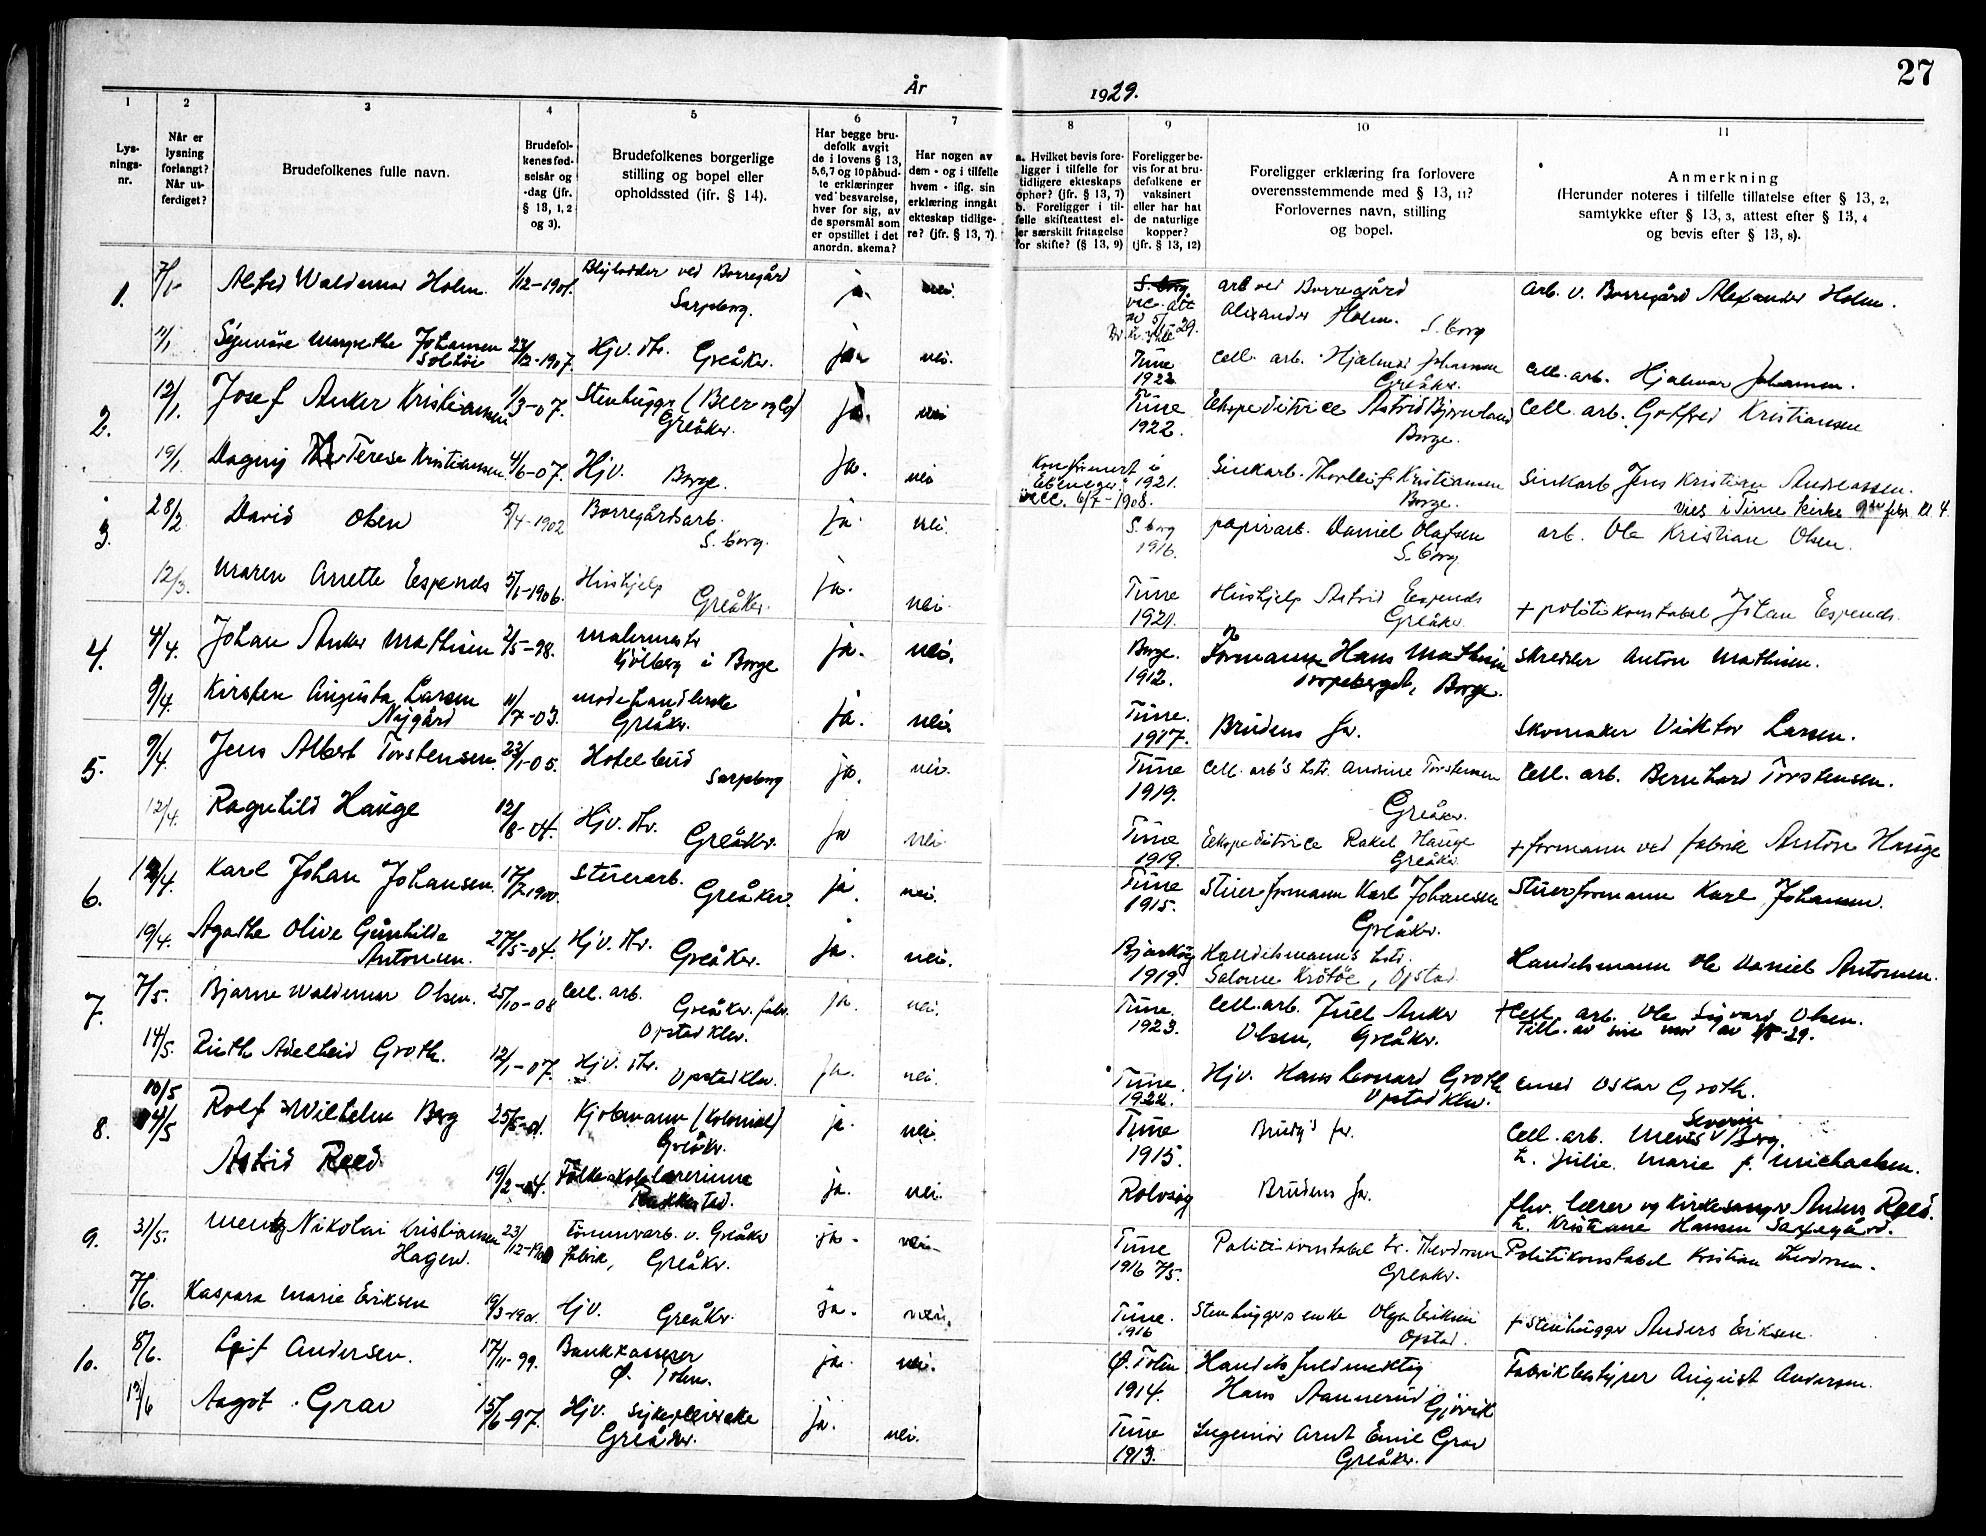 27
År 1929.
1 2 3 4 5 6 7 8 9 10 11
Lys-
nings-
nr.
Når er
lysning
forlangt?
Når ut-
ferdiget?
Brudefolkenes fulle navn.
Brudefol-
kenes fød-
selsår og
-dag (jfr.
§ 13, 1, 2
og 3).
Brudefolkenes borgerlige
stilling og bopel eller
opholdssted (ifr. § 14).
Har begge bru-
defolk avgit
de i lovens § 13,
5, 6, 7 og 10 påbud-
te erklæringer
ved besvarelse,
hver for sig, av
de spørsmål som
er opstillet i det
anordn. skema?
Har nogen av
dem - og i tilfelle
hvem - iflg. sin
erklæring inngåt
ekteskap tidlige-
re? (jfr. § 13, 7).
a. Hvilket bevis fore-
ligger i tilfelle for
tidligere ekteskaps
ophør? (jfr. § 13, 7)
b. Foreligger i til-
felle skifteattest el-
ler særskilt fritagelse
for skifte? (§ 13, 9)
Foreligger be-
vis for at bru-
defolkene er
vaksinert
eller har hat
de naturlige
kopper?
(jfr. § 13, 12)
Foreligger erklæring fra forlovere
overensstemmende med § 13, 11?
Forlovernes navn, stilling
og bopel.
Anmerkning
(Herunder noteres i tilfelle tillatelse efter § 13, 2,
samtykke efter § 13, 3, attest efter § 13, 4
og bevis efter § 13, 8).
1. 7/1 Alfred Waldemar Holm. 1/12-1901. ved Borregård
Sarpsborg. ja. nei. S. borg
arb ved Borregård
Alexander Holm. S. borg
Arb. v. Borregård Alexander Holm.
11/1 Margrethe Johansen
23/12-1907. Hjv. dtr. Greåker. ja nei. Tune
1922
Cell. arb. Hjalmar Johansen
Greåker.
Cell. arb. Hjalmar Johansen.
2. 12/1. Josef Anker Kristiansen 1/3-07. Stenhugger (Beer og Co)
Greåker. ja. nei Tune
1922.
Ekspeditrice Astrid Bjørnland
Borge.
Cell. arb. Gotfred Kristiansen
19/1. Dagny Terese Kristiansen 4/6-07. Hjv. Borge. ja. nei
Konfirmert i
"Ebeneser" 1921.
vacc. 6/7-1908.
Sinkarb. Thorleif Kristiansen
Borge.
Sinkarb Jens Kristian Andreassen.
Vies i Tune Kirke 9de febr. kl 4.
3. 28/2 David Olsen 5/4-1902 Borregårdsarb.
S. borg. ja. nei. S. borg
1916.
papirarb. Daniel Olafsen
S. borg
arb. Ole Kristian Olsen.
12/3. Maren Anette Espends 5/1-1906. Hushjelp Greåker. ja. nei. Tune
1921.
Hushjelp Astrid Espends
Greåker.
+ politikonstabel Johan Espends.
4. 4/4. Johan Anker Mathisen 2/5-98. Malermester
Kjølberg i Borge ja. nei. Borge.
1912.
Formann Hans Mathisen
Torpeberget, Borge.
Skredder Anton Mathisen.
9/4. Kirsten Augusta Larsen
Nygård 11/7-03. modehandlerske
Greåker. ja. nei. Tune.
1917.
Brudens far.
Skomaker Viktor Larsen.
5. 9/4. Jens Albert Torstensen. 23/1-05. Hotelbud
Sarpsborg ja. nei. Tune
1919.
Cell. arb's hstr. Andrine Torstensen
Greåker.
Cell. arb. Bernhard Torstensen.
12/4. Ragnhild Hauge 12/8-04. Hjv. dtr. Greåker. ja nei. Tune
1919.
Ekspeditrice Rakel Hauge
Greåker
+ formann ved fabrik Anton Hauge
6. 12/4. Karl Johan Johansen. 17/7 1900. Stuerarb. Greåker. ja. nei. Tune
1915.
Stuerformann Karl Johansen
Greåker.
Stuerformann Karl Johansen.
19/4. Agathe Olive Gunhilde
Antonsen. 27/5-04. Hjv. dtr. Greåker. ja. nei. Bjarkøy
1919.
Handelsmann's hstr.
Salome Krøtøe, Opstad
Handelsmann Ole Daniel Antonsen.
7. 7/5. Bjarne Waldemar Olsen. 25/10-08 Cell. arb.
Greåker. fabr.
Opstad Klev. ja. nei. Tune.
1923.
Cell. arb. Juel Anker
Olsen, Greåker.
+ Cell. arb. Ole Sigvard Olsen.
Till. av sin mor av 4/5-29.
14/5. Ruth Adelheid Groth. 12/1-07. Hjv. dtr. Opstad Klev. ja. nei. Tune
1922.
Hjv. Hans Leonard Groth
Opstad Klev.
smed Oskar Groth.
8. 10/5
14/5 Rolf Wilhelm Berg Kjøbmann (Kolonial)
Greåker. ja. nei. Tune
1915.
Brudg's far.
Cell. arb. Severin Berg.
h. Julie Marie f. Michaelsen.
Astrid Reed. 19/2-04. Folkeskolelærerinne
Rakkestad. ja. nei. Rolvsøy
Brudens far.
fhv. lærer og kirkesanger Anders Reed.
h. Kristiane Hansen Saxegård.
9. 31/5. Nikolai Kristiansen
Hagen. v. Greåker
fabrik, Greåker. ja. nei. Tune
1916 7/5.
Politikonstabel Kr. Theodorsen
Greåker.
Politikonstabel Kristian Theodorsen.
7/6. Kaspara Marie Eriksen Hjv. Greåker. ja. nei. Tune.
1916
Stenhuggers enke Olga Eriksen
Opstad.
+ Stenhugger Anders Eriksen.
10. 8/6. Leif Andersen. 17/11-99. Bankkasserer
Ø. Toten. ja. nei. Ø. Toten
1914.
Handelsfuldmektig
Hans Aannerud Gjøvik
Fabrikbestyrer August Andersen.
13/6 Aagot Grav 15/6-97. Hjv. sykepleierske
Greåker. ja. nei. Tune
1913.
Ingeniør Arnt Emil Grav
Greåker.